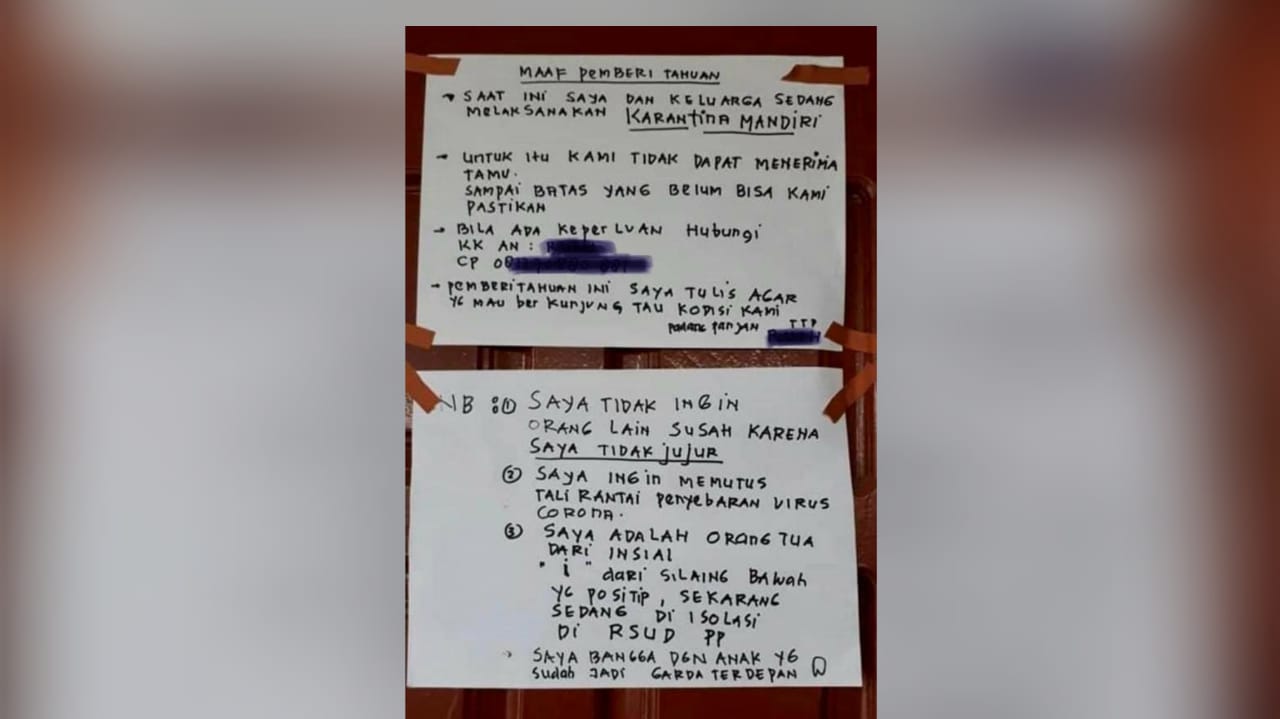 MAAF PEMBERI TAHUAN
→ SAAT INI SAYA DAN KELUARGA SEDANG
MELAKSANAKAN KARANTINA MANDIRI
→ UNTUK ITU KAMI TIDAK DAPAT MENERIMA
TAMU.
SAMPAI BATAS YANG BELUM BISA KAMI
PASTIKAN
→ BILA ADA KEPERLUAN HUBUNGI
KK AN :
CP
→ PEMBERITAHUAN INI SAYA TULIS AGAR
YG MAU BERKUNJUNG TAU KODISI KAMI
PADANG PANJAN TTD
NB : ① SAYA TIDAK INGIN
ORANG LAIN SUSAH KARENA
SAYA TIDAK JUJUR
② SAYA INGIN MEMUTUS
TALI RANTAI PENYEBARAN VIRUS
CORONA.
③ SAYA ADALAH ORANG TUA
DARI INSIAL
" i " DARI SILAING BAWAH
YG POSITIP, SEKARANG
SEDANG DI ISOLASI
DI RSUD PP
→ SAYA BANGGA DGN ANAK YG
SUDAH JADI GARDA TERDEPAN